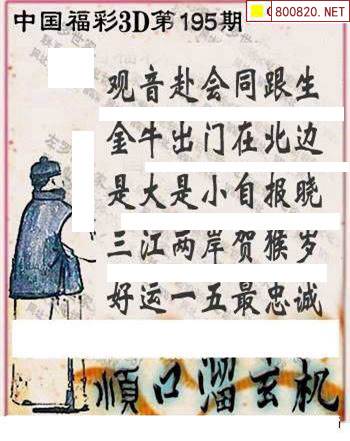 中国福彩3D第195期
800820.NET
观音赴会同跟生
金牛出门在北边
是大是小自报晓
三江两岸贺猴岁
好运一五最忠诚
順口溜玄机